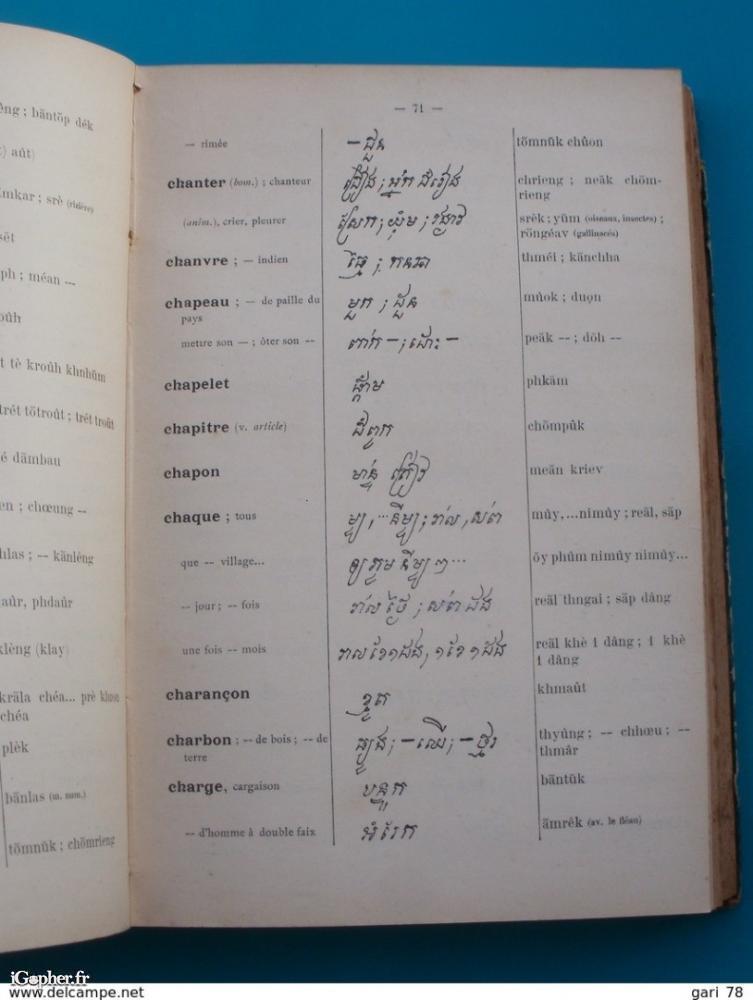 êng ; băntŏp dék
) aût)
mkar ; srè (rizière)
sĕt
ph ; méan --
oûh
t tè kroûh khnhŭm
trét tŏtroût ; trét troût
é dămbau
en ; chœung --
hlas ; -- kănlèng
aûr, phdaûr
lèng (klay)
krăla chéa... prè kluoe
chéa
plèk
bănlas (m. nom.)
tŏmnŭk ; chŏmrieng
— 71 —
— rimée —ជួន tŏmnŭk chûon
chanter (hom.) ; chanteur ច្រៀង ; អ្នក ចំរៀង chrieng ; neăk chŏm-
rieng
(anim.), crier, pleurer ស្រែក ; យុំម ; រងាវ srĕk ; yŭm (oiseaux, insectes) ;
rŏngéav (gallinacés)
chanvre ; — indien ធ្មៃ ; កនឆា thméi ; kănchha
chapeau ; — de paille du
pays មួក ; ដួន mûok ; duọn
mettre son — ; ôter son -- ពាក់ — ; ដោះ — peăk -- ; dŏh --
chapelet ផ្កាំម phkăm
chapitre (v. article) ជំពូក chŏmpûk
chapon មាន់ គ្រៀវ meăn kriev
chaque ; tous មួយ, ...នីមួយ ; រាល់, សព៌ mûy, ...nimûy ; reăl, săp
que -- village... ឲ្យ ភូម នីមួយ ៗ... ŏy phûm nimûy nimûy...
-- jour ; -- fois រាល់ ថ្ងៃ ; សព៌ ដង reăl thngai ; săp dâng
une fois -- mois រាល ខែ ១ ដង, ១ ខែ ១ ដង reăl khè 1 dâng ; 1 khè
1 dâng
charançon ខ្មូត khmaût
charbon ; -- de bois ; -- de
terre ធ្យូង ; —ឈើ ; —ថ្មរ thyûng ; -- chhœu ; --
thmâr
charge, cargaison បន្ទុក băntŭk
-- d'homme à double faix អំរែក ămrêk (av. le fléau)
iGopher.fr
www.delcampe.net
gari 78